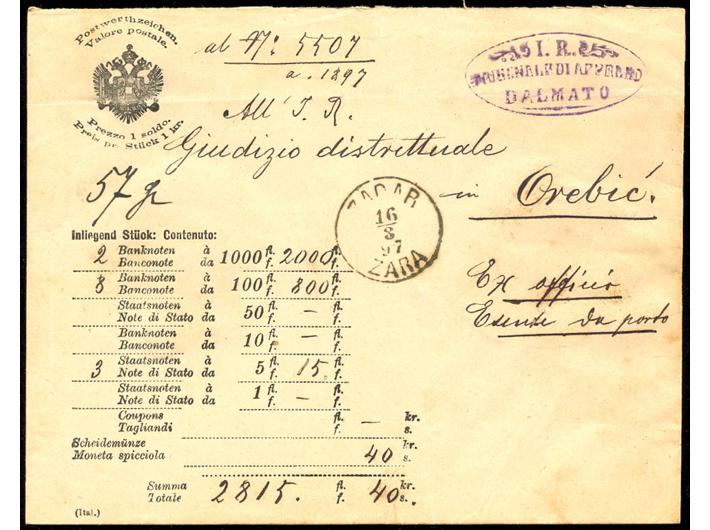 Postwerthzeichen.
Valore postale.
Prezzo 1 soldo.
Preis pr. Stück 1 kr.
ad Nº 5507
a. 1897
I. R.
TRIBUNALE DI APPELLO
DALMATO
All' I. R.
Giudizio distrettuale
in Orebić.
57 gr
ZADAR
16
3
97
ZARA
Ex officio
Esente da porto
Inliegend Stück: Contenuto:
2 Banknoten à 1000 fl. 2000 fl.
Banconote da f. f.
8 Banknoten à 100 fl. 800 fl.
Banconote da f. f.
Staatsnoten à 50 fl. — fl.
Note di Stato da f. f.
Banknoten à 10 fl. — fl.
Banconote da f. f.
3 Staatsnoten à 5 fl. 15 fl.
Note di Stato da f. f.
Staatsnoten à 1 fl. — fl.
Note di Stato da f. f.
Coupons fl. — kr.
Tagliandi f. s.
Scheidemünze kr.
Moneta spicciola 40 s.
Summa 2815. fl. 40 kr.
Totale f. s.
(Ital.)